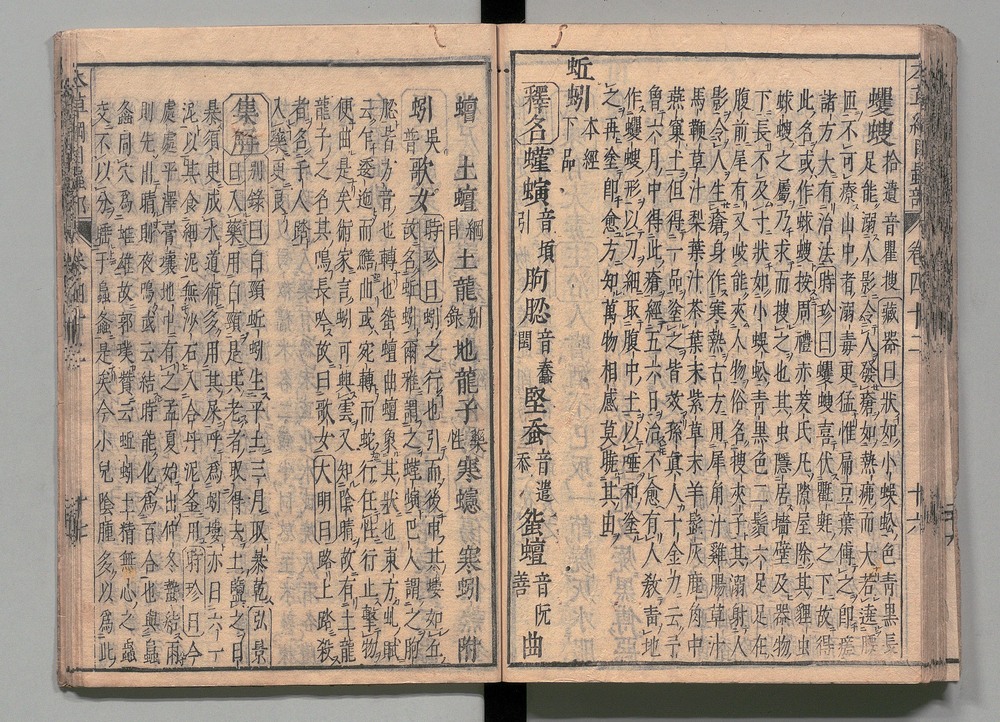 蠼螋拾遺音瞿搜藏器曰狀如小蜈蚣色青黑長
足能溺人影令人發瘡如熱疿而大若遶腰
匝不可療山中者溺毒更猛惟扁豆葉傅之即瘥
諸方大有治法時珍曰蠼螋喜伏氍毹之下故得
此名或作蛷螋按周禮赤犮氏凡隙屋除其貍虫
蛷螋之屬乃求而搜之也其虫隱居墻壁及器物
下長不及寸狀如小蜈蚣青黑色二鬚六足足在
腹前尾有叉岐能夾人物俗名搜夾子其溺射人
影令人生瘡身作寒熱古方用犀角汁雞腸草汁
馬鞭草汁梨葉汁茶葉末紫草末羊髭灰鹿角末
燕窠土但得一品塗之皆效孫真人千金力云予
魯六月中得此瘡經五六日治不愈有人教畫地
作蠼螋形以刀細取腹中土以唾和塗
之再塗即愈方知萬物相感莫曉其由
蚯蚓本經下品
釋名螼螾音頃引朐䏰音蠢閏堅蚕音遣忝䖤蟺音阮善曲
蟺土蟺綱目土龍別錄地龍子藥性寒蟪寒蚓附
蚓吳普歌女時珍曰蚓之行也引而後申其塿如丘
故名蚯蚓爾雅謂之螼螾巴人謂之朐
䏰皆方音之轉也䖤蟺曲蟺象其狀也東方虬賦
云乍逶迤而鱔曲或宛轉而蛇行任性行止擊物
便曲是矣術家言蚓可興雲又知陰晴故有土龍
龍子之名其鳴長吟故曰歌女大明曰路上踏殺
者名千人踏
入藥更良
集解別錄曰白頸蚯蚓生平土三月取暴乾弘景
曰入藥用白頸是其老者取得去土鹽之日
暴須臾成水道術多用其屎呼爲蚓塿亦曰六一
泥以其食細泥無沙石入合丹泥釜用時珍曰今
處處平澤膏壤地中有之孟夏始出仲冬蟄結雨
則先出晴則夜鳴或云結時能化爲百合也與蟲
螽同穴爲雌雄故郭璞贊云蚯蚓土精無心之蟲
交不以分婬于蟲螽是矣今小兒陰腫多以爲此